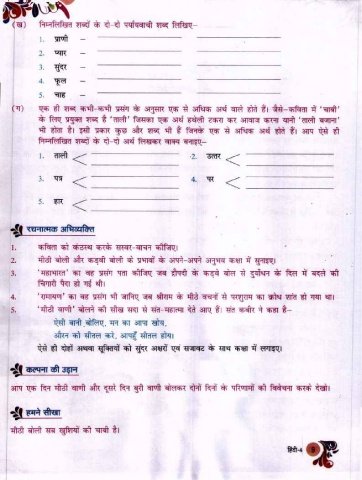 (ख) निम्नलिखित शब्दों के दो-दो पर्यायवाची शब्द लिखिए–
1. प्राणी –
2. प्यार –
3. सुंदर
4. फूल –
5. चाह
(ग) एक ही शब्द कभी-कभी प्रसंग के अनुसार एक से अधिक अर्थ वाले होते हैं। जैसे–कविता में 'चाबी'
के लिए प्रयुक्त शब्द है 'ताली' जिसका एक अर्थ हथेली टकरा कर आवाज करना यानी 'ताली बजाना'
भी होता है। इसी प्रकार कुछ और शब्द भी हैं जिनके एक से अधिक अर्थ होते हैं। आप ऐसे ही
निम्नलिखित शब्दों के दो-दो अर्थ लिखकर वाक्य बनाइए–
1. ताली 2. उत्तर
3. पत्र 4. पर
5. हार
रचनात्मक अभिव्यक्ति
1. कविता को कंठस्थ करके सस्वर-वाचन कीजिए।
2. मीठी बोली और कड़वी बोली के प्रभावों के अपने-अपने अनुभव कक्षा में सुनाइए।
3. 'महाभारत' का वह प्रसंग पता कीजिए जब द्रौपदी के कड़वे बोल से दुर्योधन के दिल में बदले की
चिंगारी पैदा हो गई थी।
4. 'रामायण' का वह प्रसंग भी जानिए जब श्रीराम के मीठे वचनों से परशुराम का क्रोध शांत हो गया था।
5. 'मीठी वाणी' बोलने की सीख सदा से संत-महात्मा देते आए हैं। संत कबीर ने कहा है–
ऐसी बानी बोलिए, मन का आपा खोय,
औरन को सीतल करे, आपहुँ सीतल होय।
ऐसे ही दोहों अथवा सूक्तियों को सुंदर अक्षरों एवं सजावट के साथ कक्षा में लगाइए।
कल्पना की उड़ान
आप एक दिन मीठी वाणी और दूसरे दिन बुरी वाणी बोलकर दोनों दिनों के परिणामों की विवेचना करके देखो।
हमने सीखा
मीठी बोली सब खुशियों की चाबी है।
हिंदी-4 9